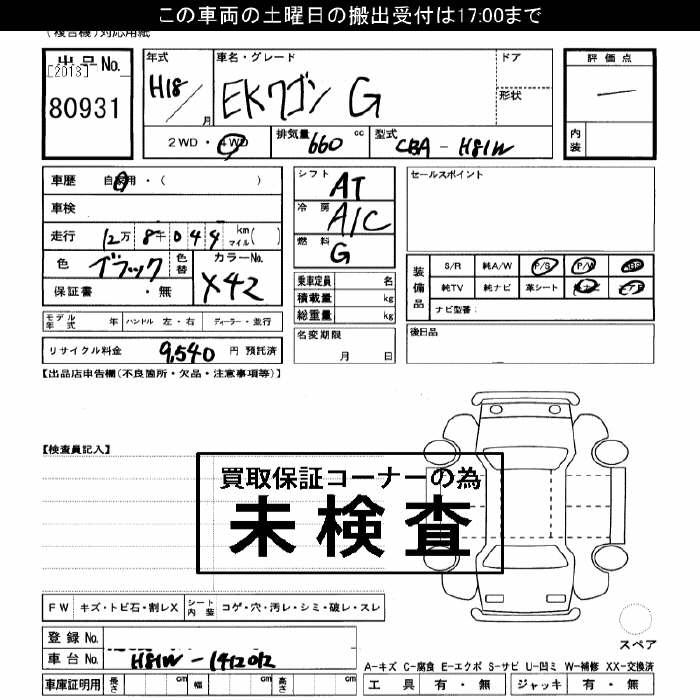 この車両の土曜日の搬出受付は17:00まで
(複合機)対応用紙
出品No.
[2013]
80931
年式
H18/月
車名・グレード
EKワゴン G
ドア
形状
評価点
—
内装
2WD・4WD
排気量 660 cc
型式 CBA-H81W
車歴 自家用・( )
車検
走行 12万8千044 km マイル( )
色 ブラック 色替
カラーNo. X42
保証書 ・無
シフト AT
冷房 A/C
燃料 G
乗車定員 名
積載量 kg
総重量 kg
名変期限
月 日
セールスポイント
装備品
S/R 純A/W P/S P/W ABS
純TV 純ナビ 革シート
ナビ型番:
後日品
モデル年式 年 ハンドル 左・右 ディーラー・並行
リサイクル料金 9,540 円 預託済
【出品店申告欄(不良箇所・欠品・注意事項等)】
【検査員記入】
買取保証コーナーの為
未検査
FW キズ・トビ石・割レX シート内装 コゲ・穴・汚レ・シミ・破レ・スレ
登録No.
車台No. H81W-1412012
車庫証明用 長さ cm 幅 cm 高さ cm
スペア
A-キズ C-腐食 E-エクボ S-サビ U-凹ミ W-補修 XX-交換済
工具 有・無 ジャッキ 有・無